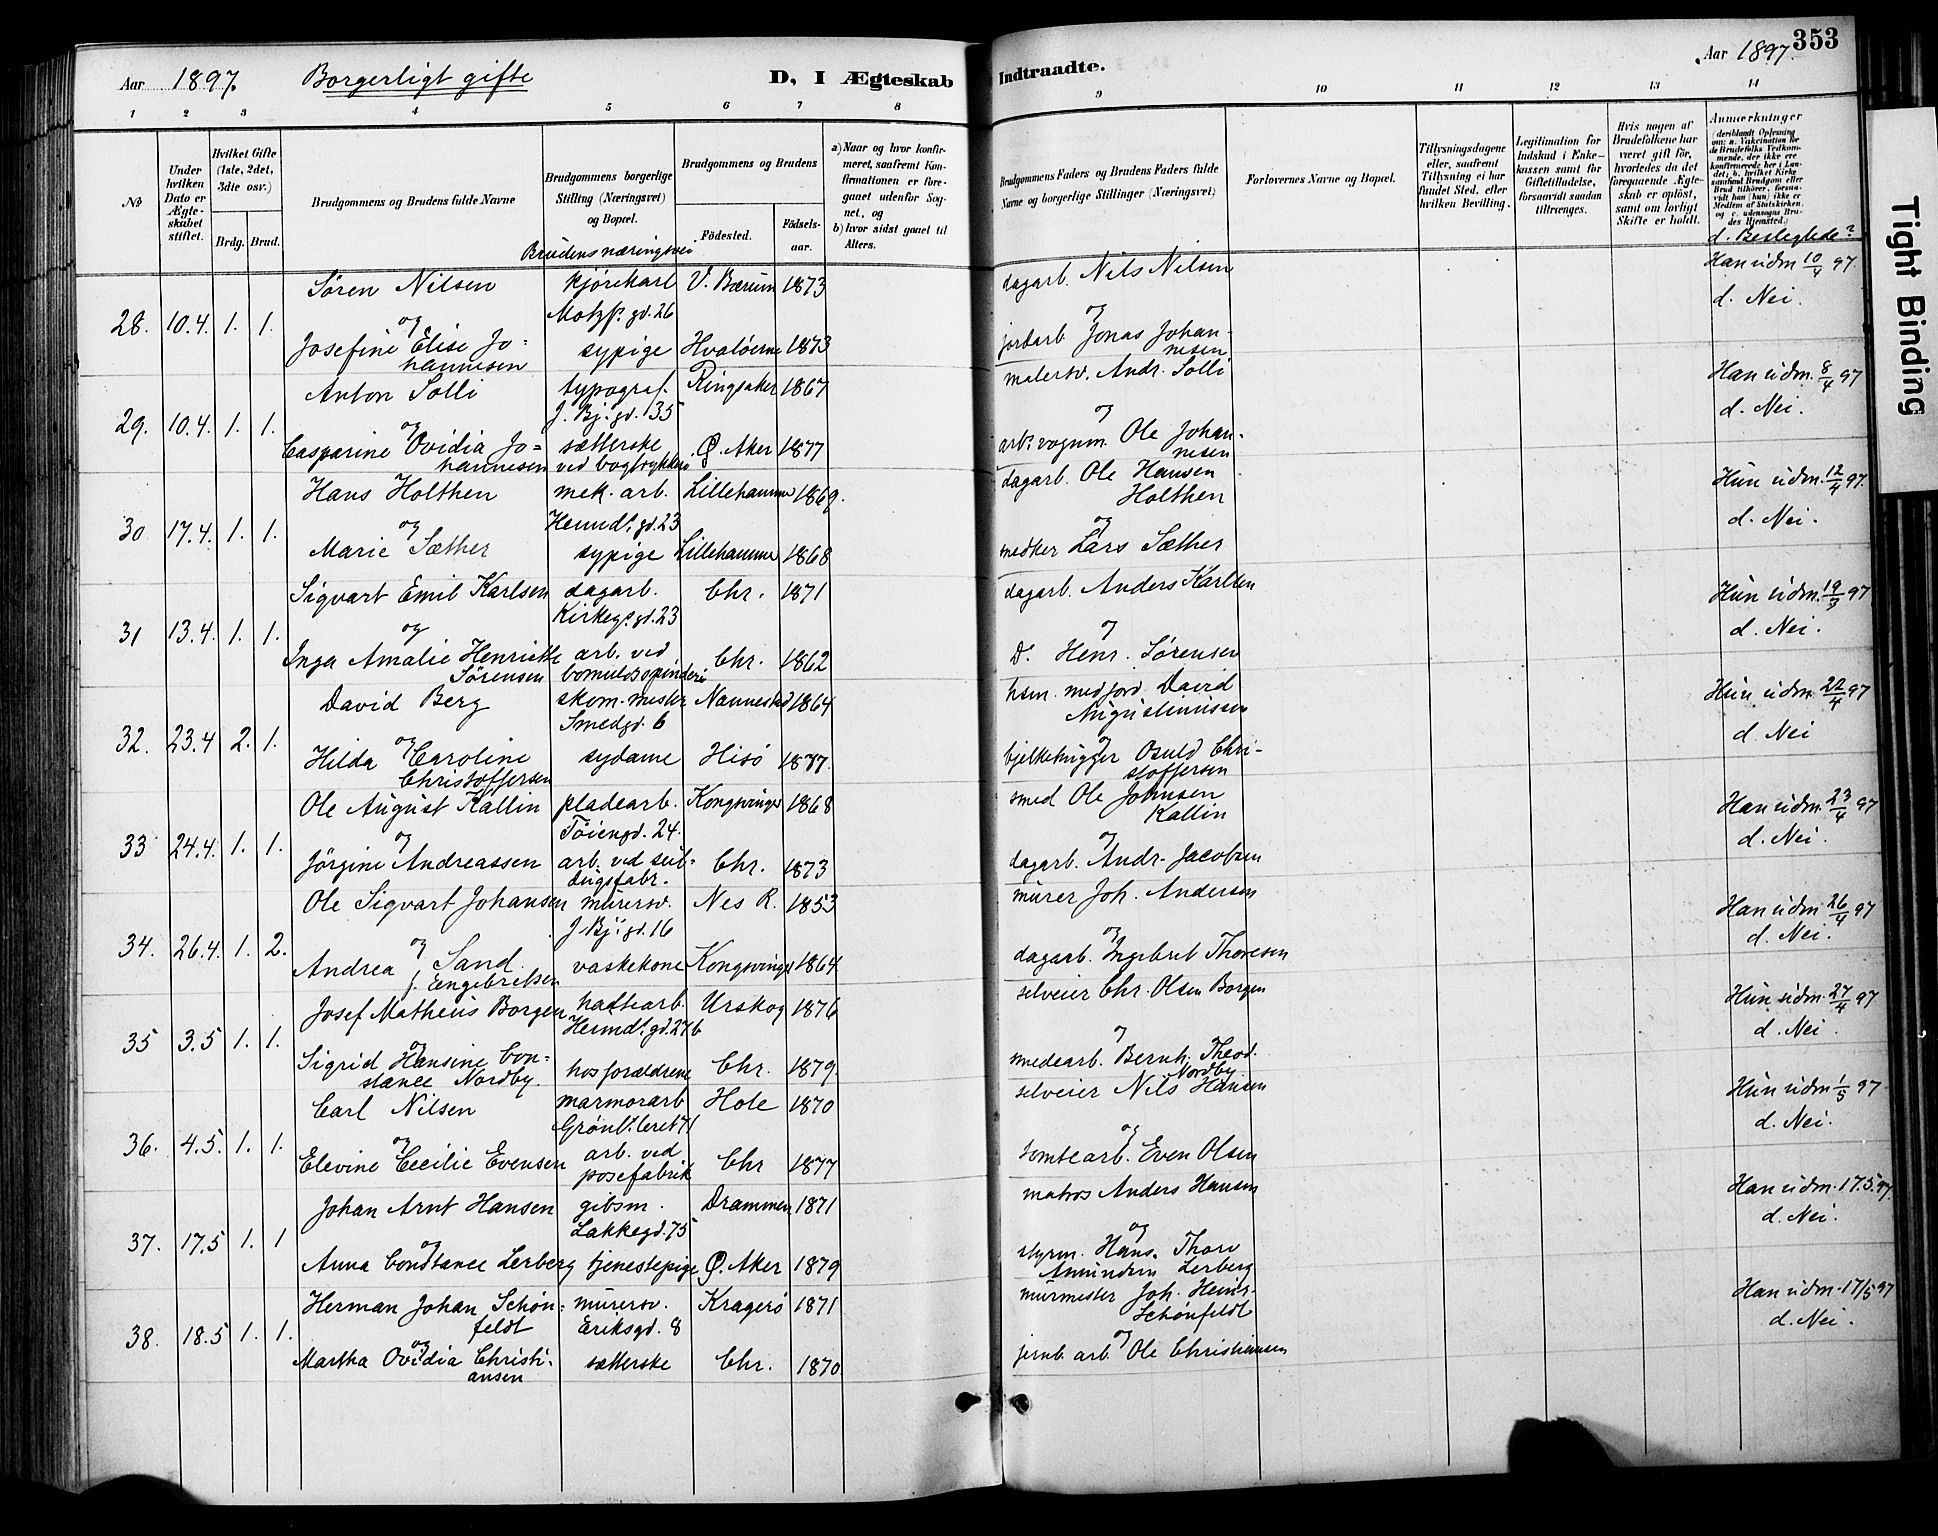 Aar 1897. Borgerligt gifte D, I Ægteskab
1 2 3 4 5 6 7 8
No
Under hvilken Dato er Ægteskabet stiftet.
Hvilket Gifte (1ste, 2det, 3die osv.)
Brdg. Brud.
Brudgommens og Brudens fulde Navne
Brudgommens borgerlige Stilling (Næringsvei) og Bopæl.
Brudens næringsvei
Brudgommens og Brudens
Fødested. Fødselsaar.
a) Naar og hvor konfirmeret, saafremt Konfirmationen er foregaaet udenfor Sognet, og
b) hvor sidst gaaet til Alters.
Søren Nilsen kjørekarl V. Bærum 1873
28. 10.4. 1. 1. og Motzf. gd. 26
Josefine Elise Jo- sypige Hvaløerne 1873
hannesen
Anton Solli typograf Ringsaker 1867
J. Bj. gd. 135
29. 10.4. 1. 1. og
Casparine Ovidia Jo- sætterske Ø. Aker 1877
hannesen ved bogtrykkeri
Hans Holthen mek. arb. Lillehammer 1869.
30 17.4. 1. 1. og Herind. gd. 23
Marie Sæther sypige Lillehammer 1868
Sigvart Emil Karlsen dagarb. Chr. 1871
31 13.4. 1. 1. og Kirkeg. gd. 23
Inga Amalie Henriette arb. ved Chr. 1862
Sørensen bomuldsspinderi
David Berg skom. mester Nannestad 1864
Smedgd. 6
32. 23.4 2. 1. og
Hilda Caroline sydame Hisø 1877.
Christoffersen
Ole August Kallin pladearb. Kongsvinger 1868
33 24.4. 1. 1. og Tøiengd. 24.
Jørgine Andreassen arb. ved seil- Chr. 1873
dugsfabr.
Ole Sigvart Johansen murersv. Nes R. 1853
J. Bj. gd. 16
34. 26.4. 1. 2. og
Andrea Sand vaskekone Kongsvinger 1864
f. Engebretsen
Josef Matheus Borgen hattearb. Urskog 1876
35 3.5 1. 1. og Herind. gd. 27 b
Sigrid Hansine Con- hos forældrene Chr. 1879.
stance Nordby.
Carl Nilsen marmorarb Hole 1870
Grønl. leret 71
36. 4.5. 1. 1. og
Elevine Cecilie Evensen arb. ved posefabrik Chr 1877
Johan Arnt Hansen gibsm. Drammen 1871
37. 17.5 1. 1 og Lakkegd. 75
Anna Constance Lerberg tjenestepige Ø. Aker 1879
Herman Johan Schøn- murersv. Kragerø 1871
feldt Eriksgd. 8
38. 18.5 1. 1. og
Martha Ovidia Christi- sætterske Chr. 1870
ansen
Indtraadte. Aar 1897. 353
9 10 11 12 13 14
Brudgommens Faders og Brudens Faders fulde Navne og borgerlige Stillinger (Næringsvei)
Forlovernes Navne og Bopæl.
Tillysningsdagene eller, saafremt Tillysning ei har fundet Sted, efter hvilken Bevilling.
Legitimation for Indskud i Enkekassen samt for Giftetilladelse, forsaavidt saadan tiltrænges.
Hvis nogen af Brudefolkene har været gift før, hvorledes da det foregaaende Ægteskab er opløst, samt om lovligt Skifte er holdt.
Anmerkninger
(deriblandt Oplysning om: a. Vakcination for de Brudefolks Vedkommende, der ikke ere konfirmerede her i Landet; b. hvilket Kirkesamfund Brudgom eller Brud tilhører, forsaavidt han (hun) ikke er Medlem af Statskirken, og c. udensogns Brudes Hjemsted.)
d. Beslegtede?
dagarb. Nils Nilsen Han udm 10/4 97.
og d. Nei.
jordarb. Jonas Johan-
nesen
malersv. Andr. Solli Han udm. 8/4 97
og d. Nei.
arb. vognm. Ole Johan-
nesen
dagarb. Ole Hansen Hun udm. 12/4 97.
Holthen
og d. Nei.
Lars Sæther
dagarb. Anders Karlsen Hun udm. 19/3 97
og d. Nei.
D. Henr. Sørensen
hsm. med jord David Hun udm. 22/4 97
Augustinussen
og d. Nei
bjelkehugger Osuld Chri-
stoffersen
smed Ole Johnsen Han udm. 23/4 97
Kallin
og d. Nei.
dagarb. Andr. Jacobsen
murer Joh. Andersen Han udm 26/4 97
og d. Nei.
dagarb. Ingebret Thoresen
selveier Chr. Olsen Borgen Hun udm. 27/4 97
og d. Nei.
smedearb. Bernh. Theod.
Nordby.
selveier Nils Hansen Hun udm 1/5 97
og d. Nei.
tomtearb. Even Olsen
matros Anders Hansen Han udm. 17.5.97
og d. Nei.
styrm. Hans Thorv
Amundsen Lerberg
murmester Joh. Heinr. Han udm. 17/5 97
Schønfeldt
og d. Nei.
jernb. arb. Ole Christiansen
Tight Binding